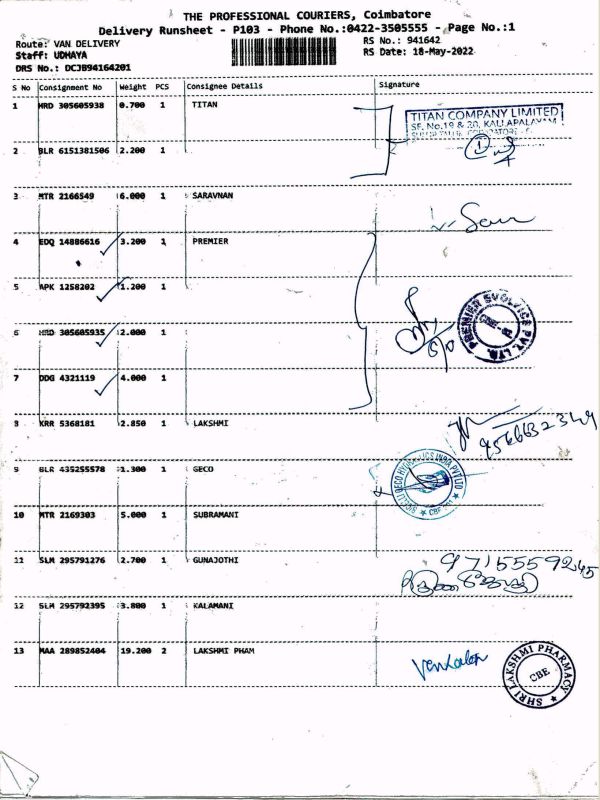 THE PROFESSIONAL COURIERS, Coimbatore
Delivery Runsheet - P103 - Phone No.:0422-3505555 - Page No.:1
Route: VAN DELIVERY
RS No.: 941642
Staff: UDHAYA
RS Date: 18-May-2022
DRS No.: DCJB94164201
S No Consignment No Weight PCS Consignee Details Signature
1 HRD 305605938 0.700 1 TITAN
TITAN COMPANY LIMITED
SF. No.19 & 20, KALLAPALAYAM
2 BLR 6151381506 2.200 1
3 MTR 2166549 6.000 1 SARAVNAN
4 EDQ 14886616 3.200 1 PREMIER
5 APK 1258202 1.200 1
PREMIER EVOLVICS PVT. LTD.
CBE
6 HRD 305605935 2.000 1
7 DDG 4321119 4.000 1
8 KRR 5368181 2.850 1 LAKSHMI
9 BLR 435255578 1.300 1 GECO
10 MTR 2169303 5.000 1 SUBRAMANI
11 SLM 295791276 2.700 1 GUNAJOTHI
9715559245
12 SLM 295792395 3.800 1 KALAMANI
13 MAA 289852404 19.200 2 LAKSHMI PHAM
SHRI LAKSHMI PHARMACY
CBE